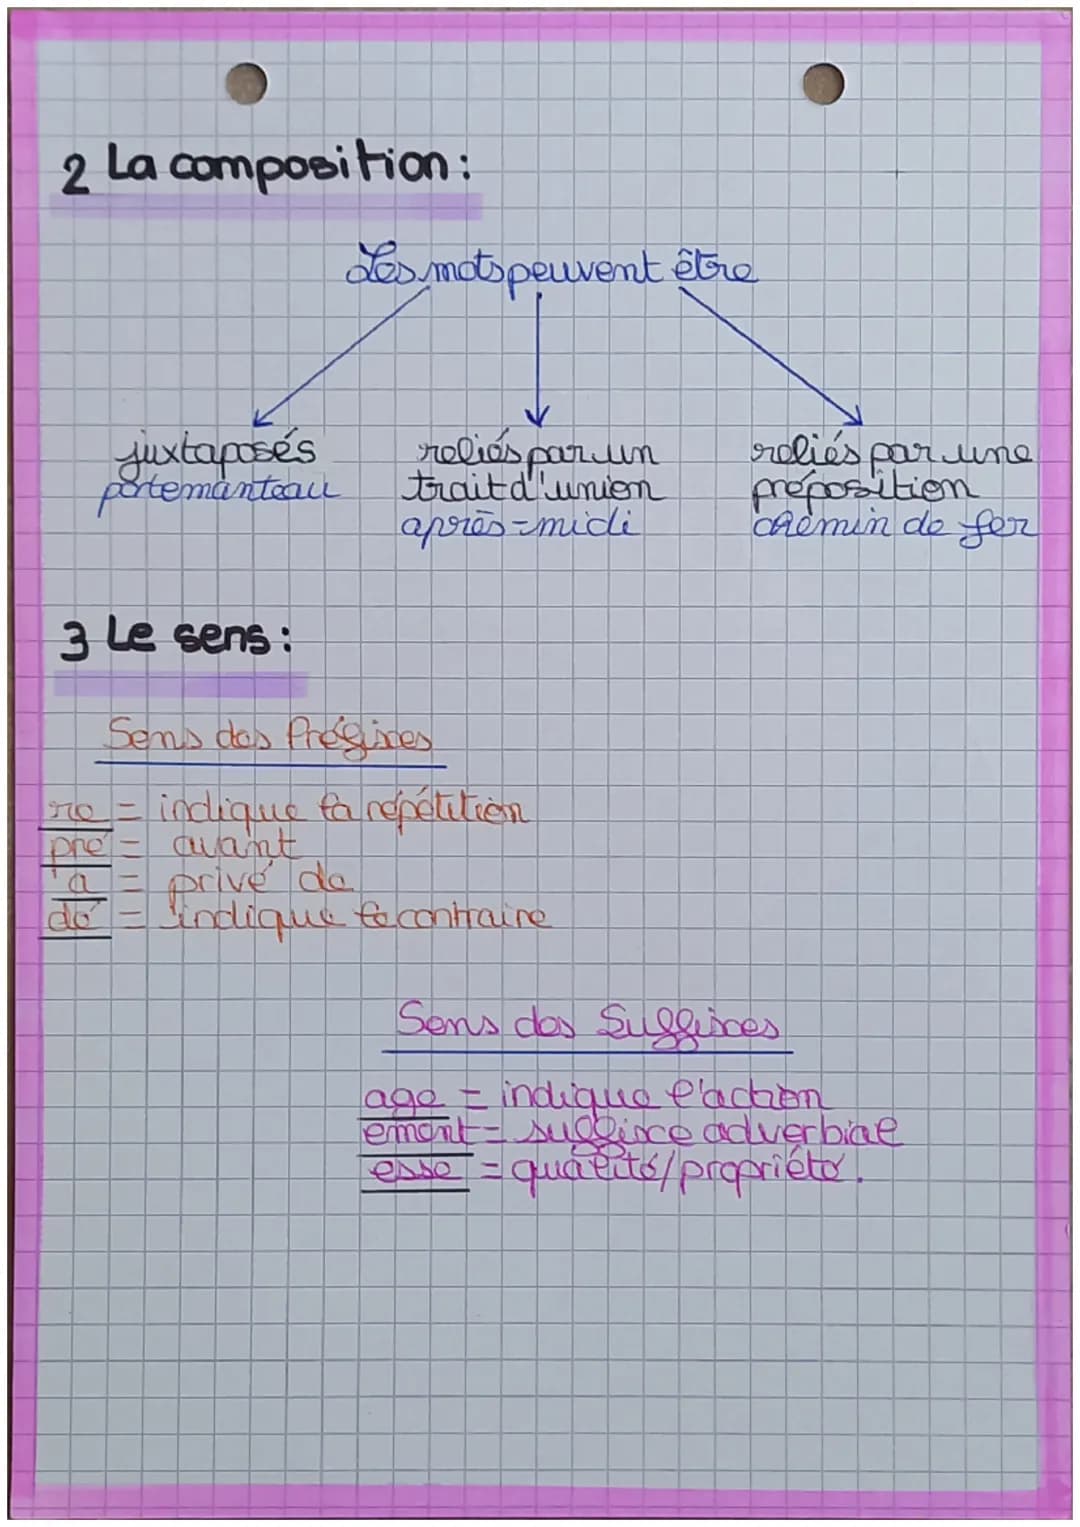 2 La composition :
Les mots peuvent être
juxtaposés
portemanteau
reliés par un
trait d'union
après-midi
reliés par une
préposition
chemin de fer
3 Le sens :
Sens des Préfixes
re = indique la répétition
pré = avant
a = privé de
dé = indique le contraire
Sens des Suffixes
age = indique l'action
ement = suffixe adverbial
esse = qualité/propriété.